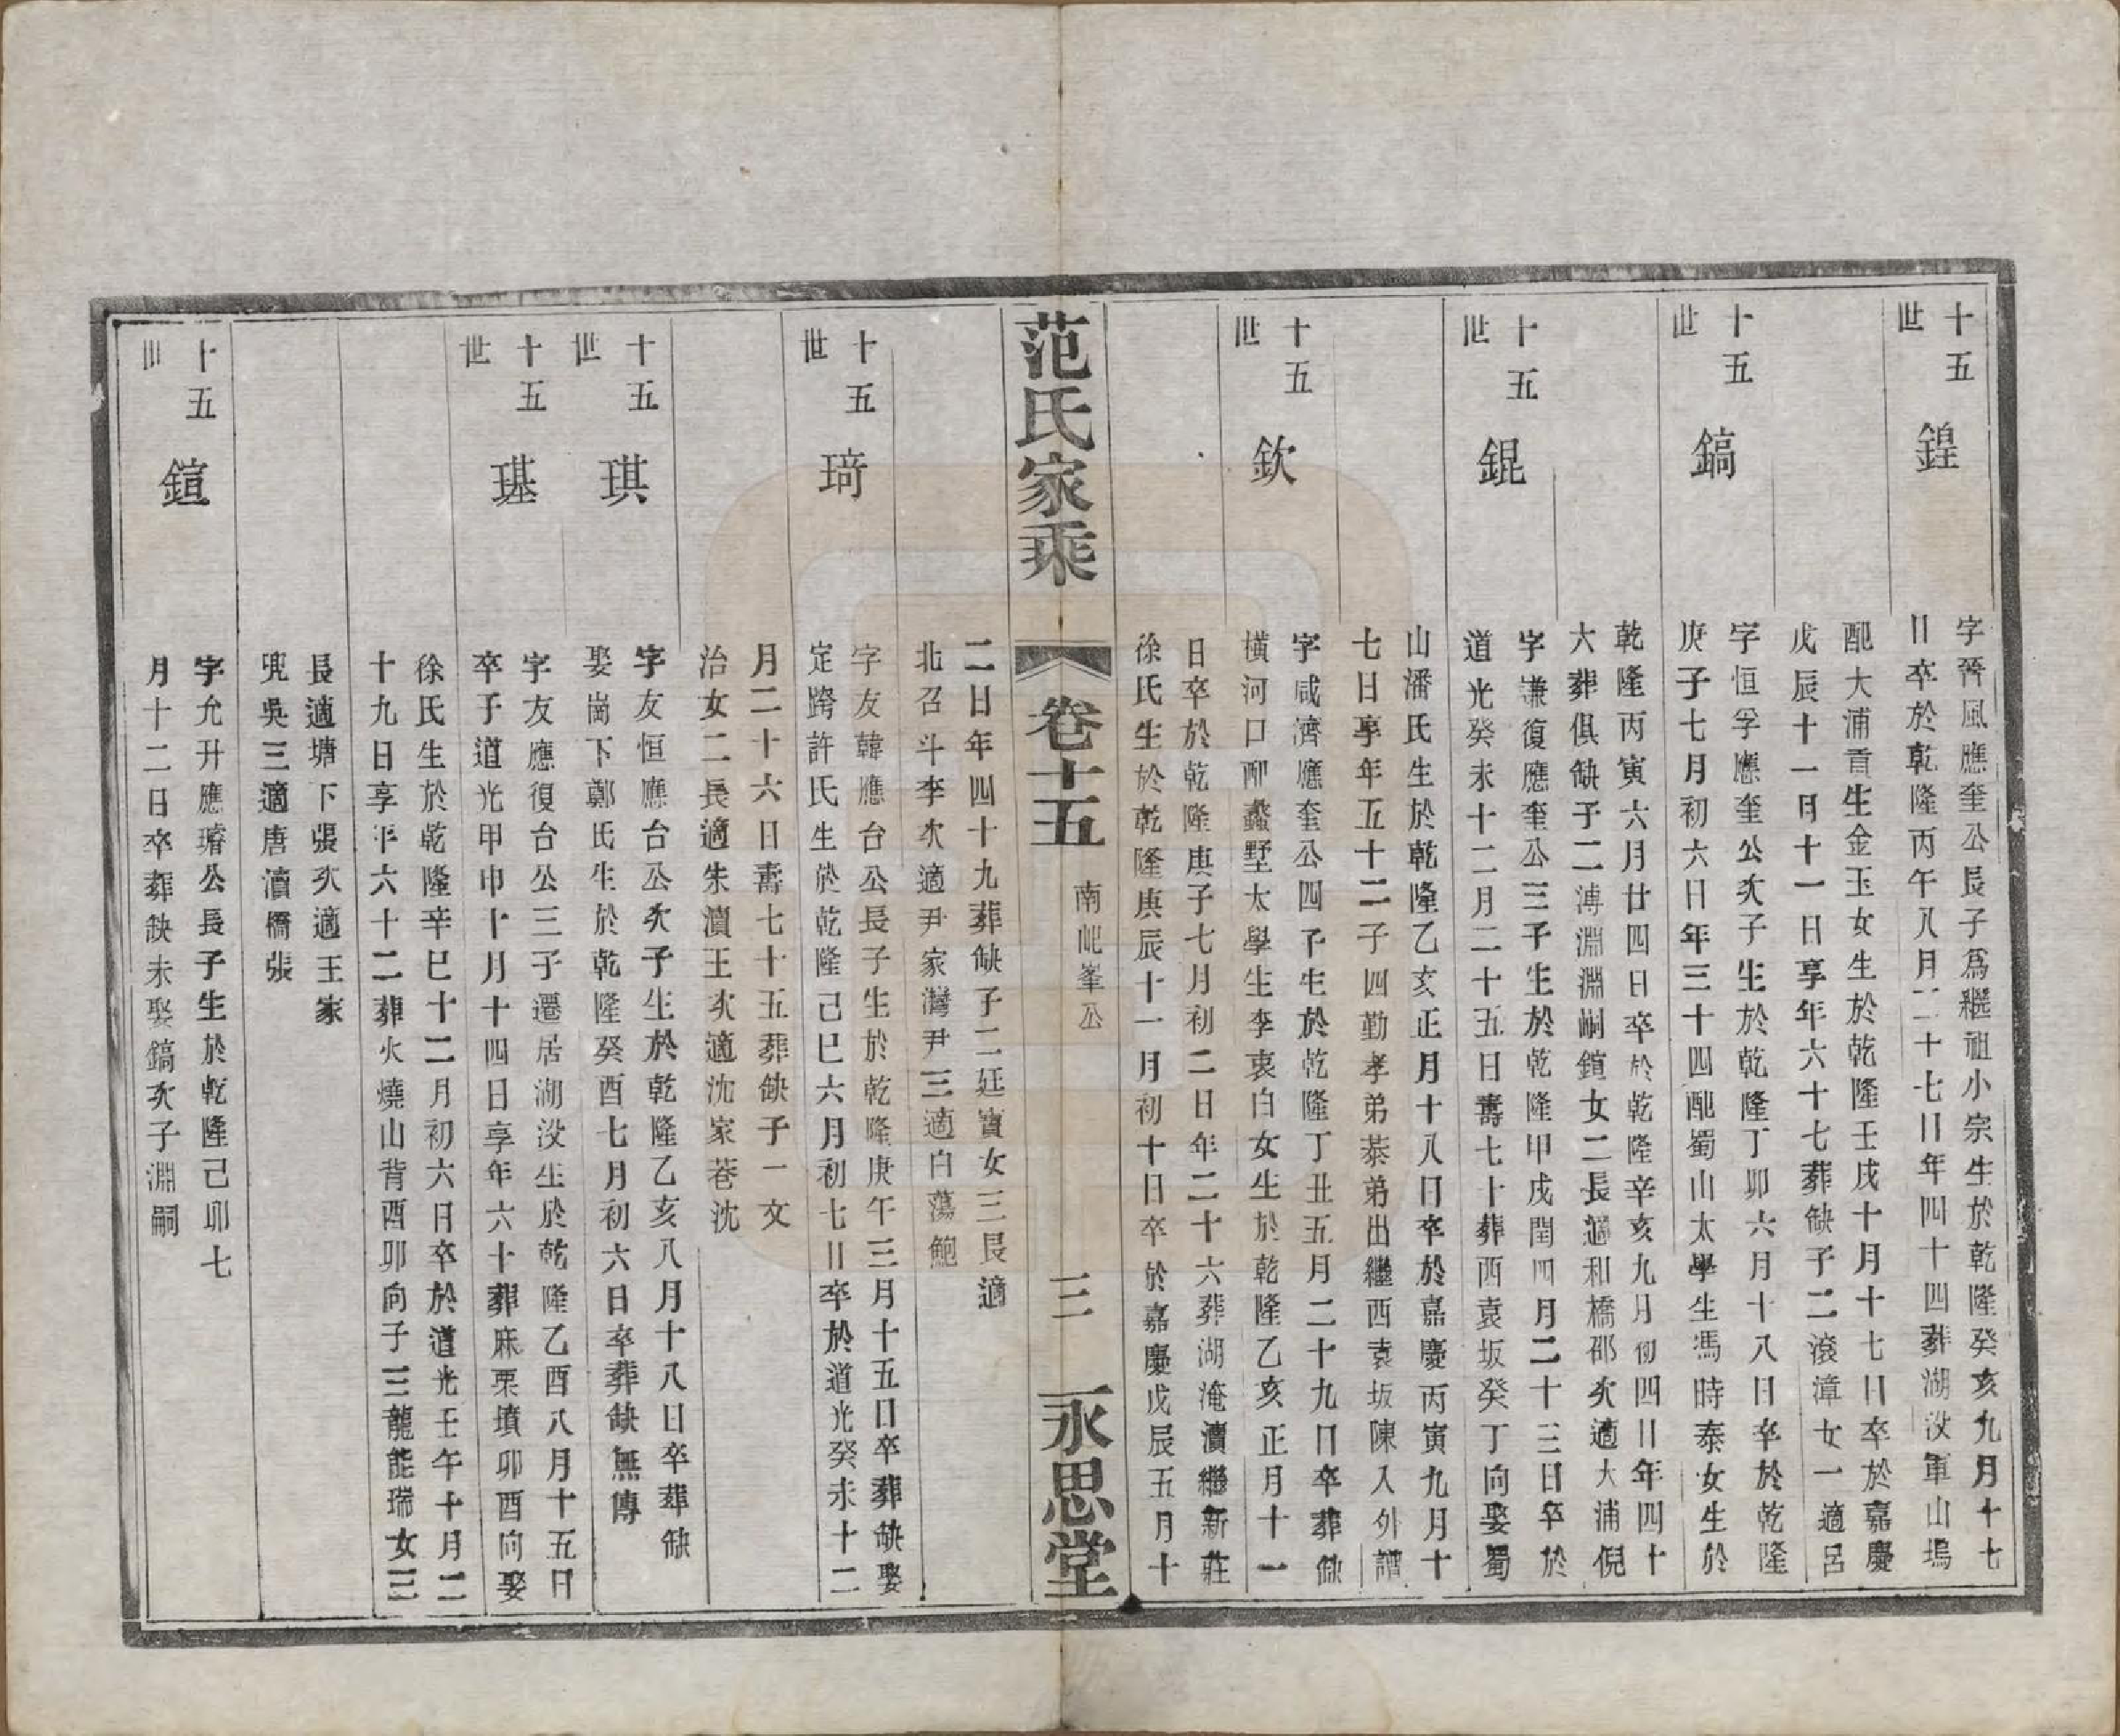 十五世 鍠
字晉風應奎公長子為繼祖小宗生於乾隆癸亥九月十七
日卒於乾隆丙午八月二十七日年四十四葬湖㳇軍山塢
配大浦貢生金玉女生於乾隆壬戌十月十七日卒於嘉慶
戊辰十一月十一日享年六十七葬缺子二滾漳女一適呂
十五世 鎬
字恒孚應奎公次子生於乾隆丁卯六月十八日卒於乾隆
庚子七月初六日年三十四配蜀山太學生馮時泰女生於
乾隆丙寅六月廿四日卒於乾隆辛亥九月初四日年四十
六葬俱缺子二溥淵淵嗣鎧女二長適和橋邵次適大浦倪
十五世 錕
字謙復應奎公三子生於乾隆甲戌閏四月二十三日卒於
道光癸未十二月二十五日壽七十葬西袁坂癸丁向娶蜀
山潘氏生於乾隆乙亥正月十八日卒於嘉慶丙寅九月十
七日享年五十二子四勤孝弟恭弟出繼西袁坂陳入外譜
十五世 欽
字咸濟應奎公四子生於乾隆丁丑五月二十九日卒葬缺
橫河口配蠡墅太學生李衷白女生於乾隆乙亥正月十一
日卒於乾隆庚子七月初二日年二十六葬湖淹瀆繼新莊
徐氏生於乾隆庚辰十一月初十日卒於嘉慶戊辰五月十
范氏家乘 卷十五 南屺峯公 三 永思堂
二日年四十九葬缺子二廷寶女三長適
北召斗李次適尹家灣尹三適白蕩鮑
十五世 琦
字友韓應台公長子生於乾隆庚午三月十五日卒葬缺娶
定跨許氏生於乾隆己巳六月初七日卒於道光癸未十二
月二十六日壽七十五葬缺子一文
治女二長適朱瀆王次適沈家巷沈
十五世 琪
字友恒應台公次子生於乾隆乙亥八月十八日卒葬缺
娶崗下鄭氏生於乾隆癸酉七月初六日卒葬缺無傳
十五世 璂
字友應復台公三子遷居湖㳇生於乾隆乙酉八月十五日
卒于道光甲申十月十四日享年六十葬麻栗墳卯酉向娶
徐氏生於乾隆辛巳十二月初六日卒於道光壬午十月二
十九日享年六十二葬火燒山背酉卯向子三龍能瑞女三
長適塘下張次適王家
兜吳三適唐瀆橋張
十五世 鎧
字允升應璿公長子生於乾隆己卯七
月十二日卒葬缺未娶鎬次子淵嗣